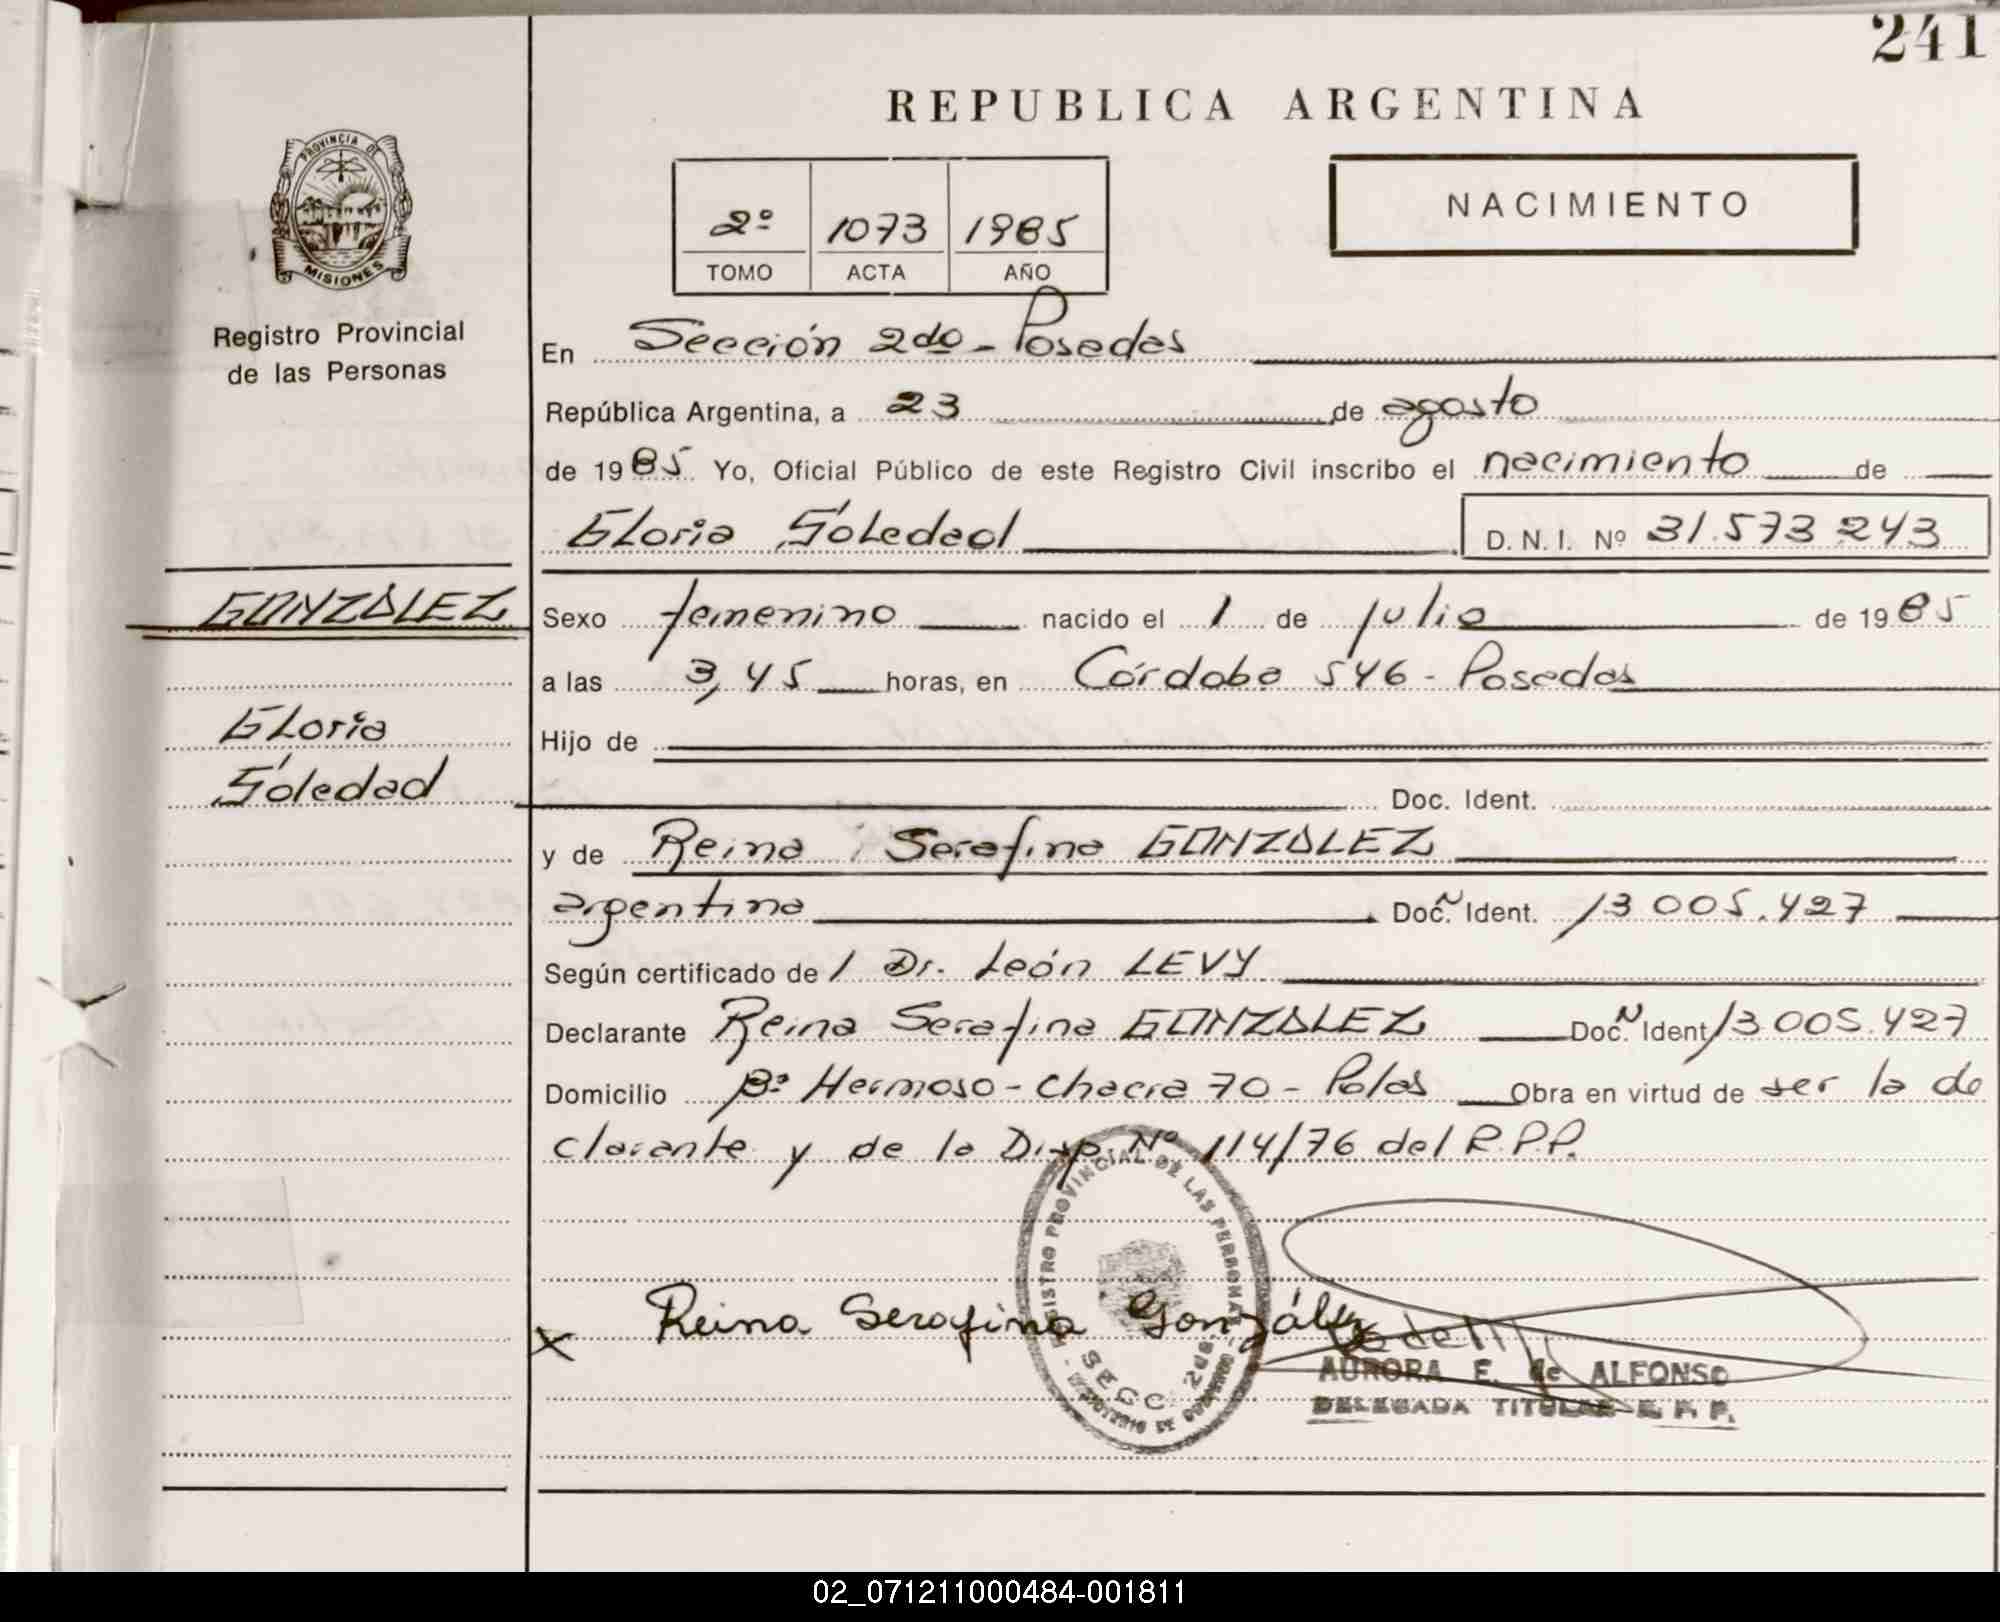 241
REPUBLICA ARGENTINA
PROVINCIA DE
MISIONES
Registro Provincial
de las Personas
2º 1073 1985
TOMO ACTA AÑO
NACIMIENTO
En Sección 2da - Posadas
República Argentina, a 23 de agosto
de 1985 Yo, Oficial Público de este Registro Civil inscribo el nacimiento de
Gloria Soledad D. N. I. Nº 31.573 243
GONZALEZ
Gloria
Soledad
Sexo femenino nacido el 1 de julio de 1985
a las 3,45 horas, en Córdoba 546 - Posadas
Hijo de
Doc. Ident.
y de Reina Serafina GONZALEZ
argentina Doc. Ident. 13 005.427
Según certificado de / Dr. León LEVY
Declarante Reina Serafina GONZALEZ Doc. Ident 13 005.427
Domicilio Bº Hermoso - Chacra 70 - Pdas Obra en virtud de ser la de
clarante y de la Disp. Nº 114/76 del R.P.P.
REGISTRO PROVINCIAL DE LAS PERSONAS
SECC. 2da.
MINISTERIO DE GOBIERNO
X Reina Serafina González
AURORA E. de ALFONSO
DELEGADA TITULAR R. P. P.
02_071211000484-001811